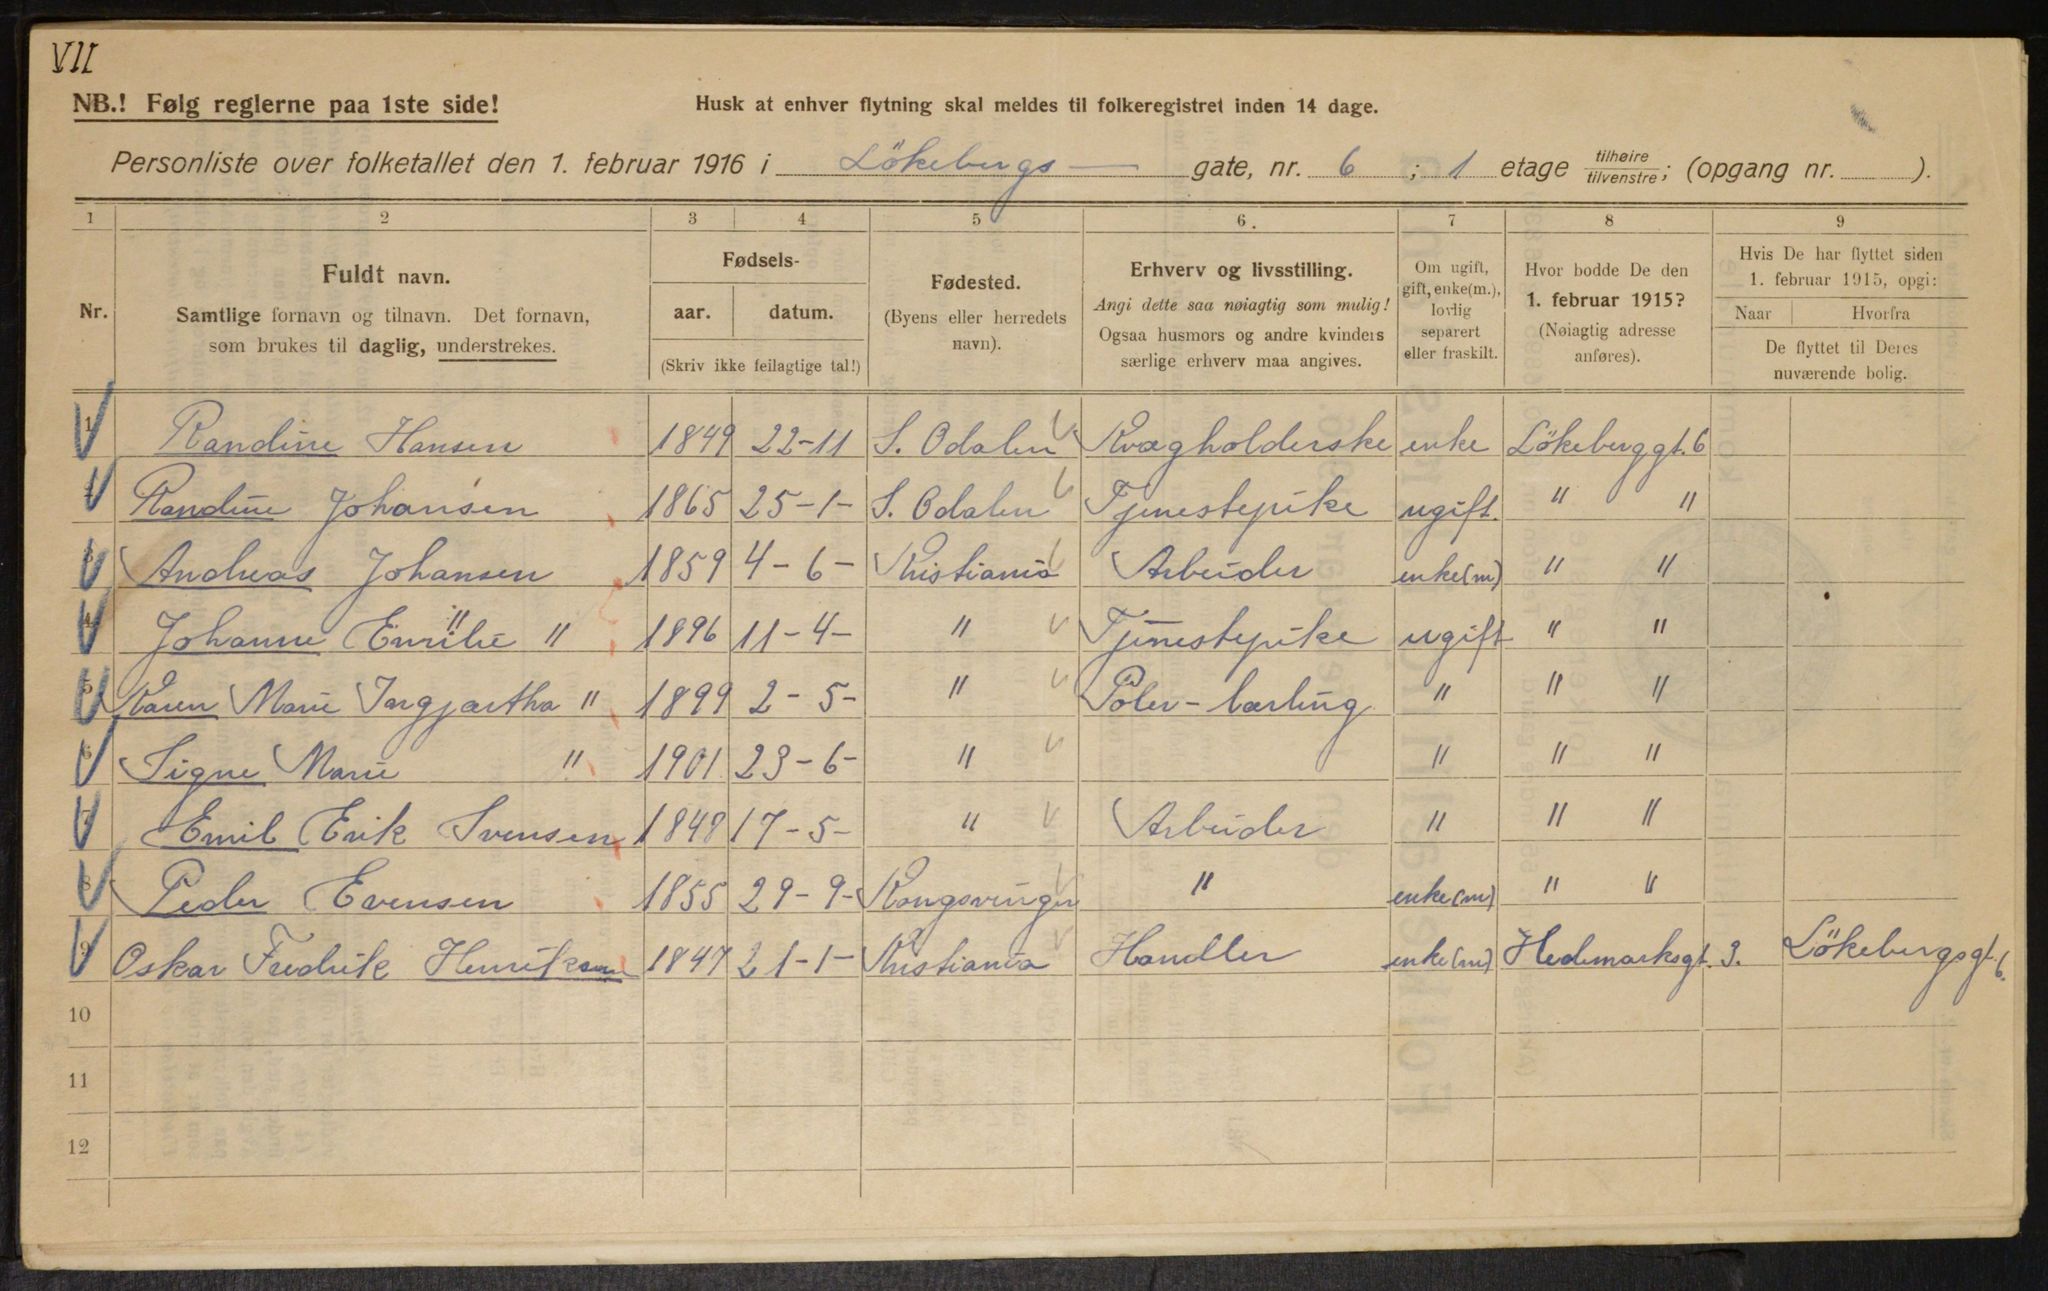 VII
NB.! Følg reglerne paa 1ste side!
Husk at enhver flytning skal meldes til folkeregistret inden 14 dage.
Personliste over folketallet den 1. februar 1916 i Lökebergs— gate, nr. 6 ; 1 etage tilhøire/tilvenstre; (opgang nr. ).
1 2 3 4 5 6. 7 8 9
Nr.
Fuldt navn.
Samtlige fornavn og tilnavn. Det fornavn,
som brukes til daglig, understrekes.
Fødsels-
aar. datum.
(Skriv ikke feilagtige tal!)
Fødested.
(Byens eller herredets
navn).
Erhverv og livsstilling.
Angi dette saa nøiagtig som mulig!
Ogsaa husmors og andre kvinders
særlige erhverv maa angives.
Om ugift,
gift, enke(m.),
lovlig
separert
eller fraskilt.
Hvor bodde De den
1. februar 1915?
(Nøiagtig adresse
anføres).
Hvis De har flyttet siden
1. februar 1915, opgi:
Naar Hvorfra
De flyttet til Deres
nuværende bolig.
1 Randine Hansen 1849 22-11 S. Odalen Kvægholderske enke Lökeberggt. 6
2 Randine Johansen 1865 25-1- S. Odalen Tjenestepike ugift. " "
3 Andreas Johansen 1859 4-6- Kristiania Arbeider enke(m) " "
4 Johanne Emilie " 1896 11-4- " Tjenestepike ugift " "
5 Karen Marie Ingjærtha " 1899 2-5- " Poler-lærling " " "
6 Signe Marie " 1901 23-6- " " " "
7 Emil Erik Svensen 1848 17-5- " Arbeider " " "
8 Peder Evensen 1855 29-9- Kongsvinger " enke(m) " "
9 Oskar Fredrik Henriksen 1847 21-1- Kristiania Handler enke(m) Hedemarksgt. 3. Lökebergsgt. 6.
10
11
12